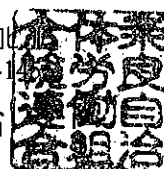 奈良自治
体労働組
合総連合